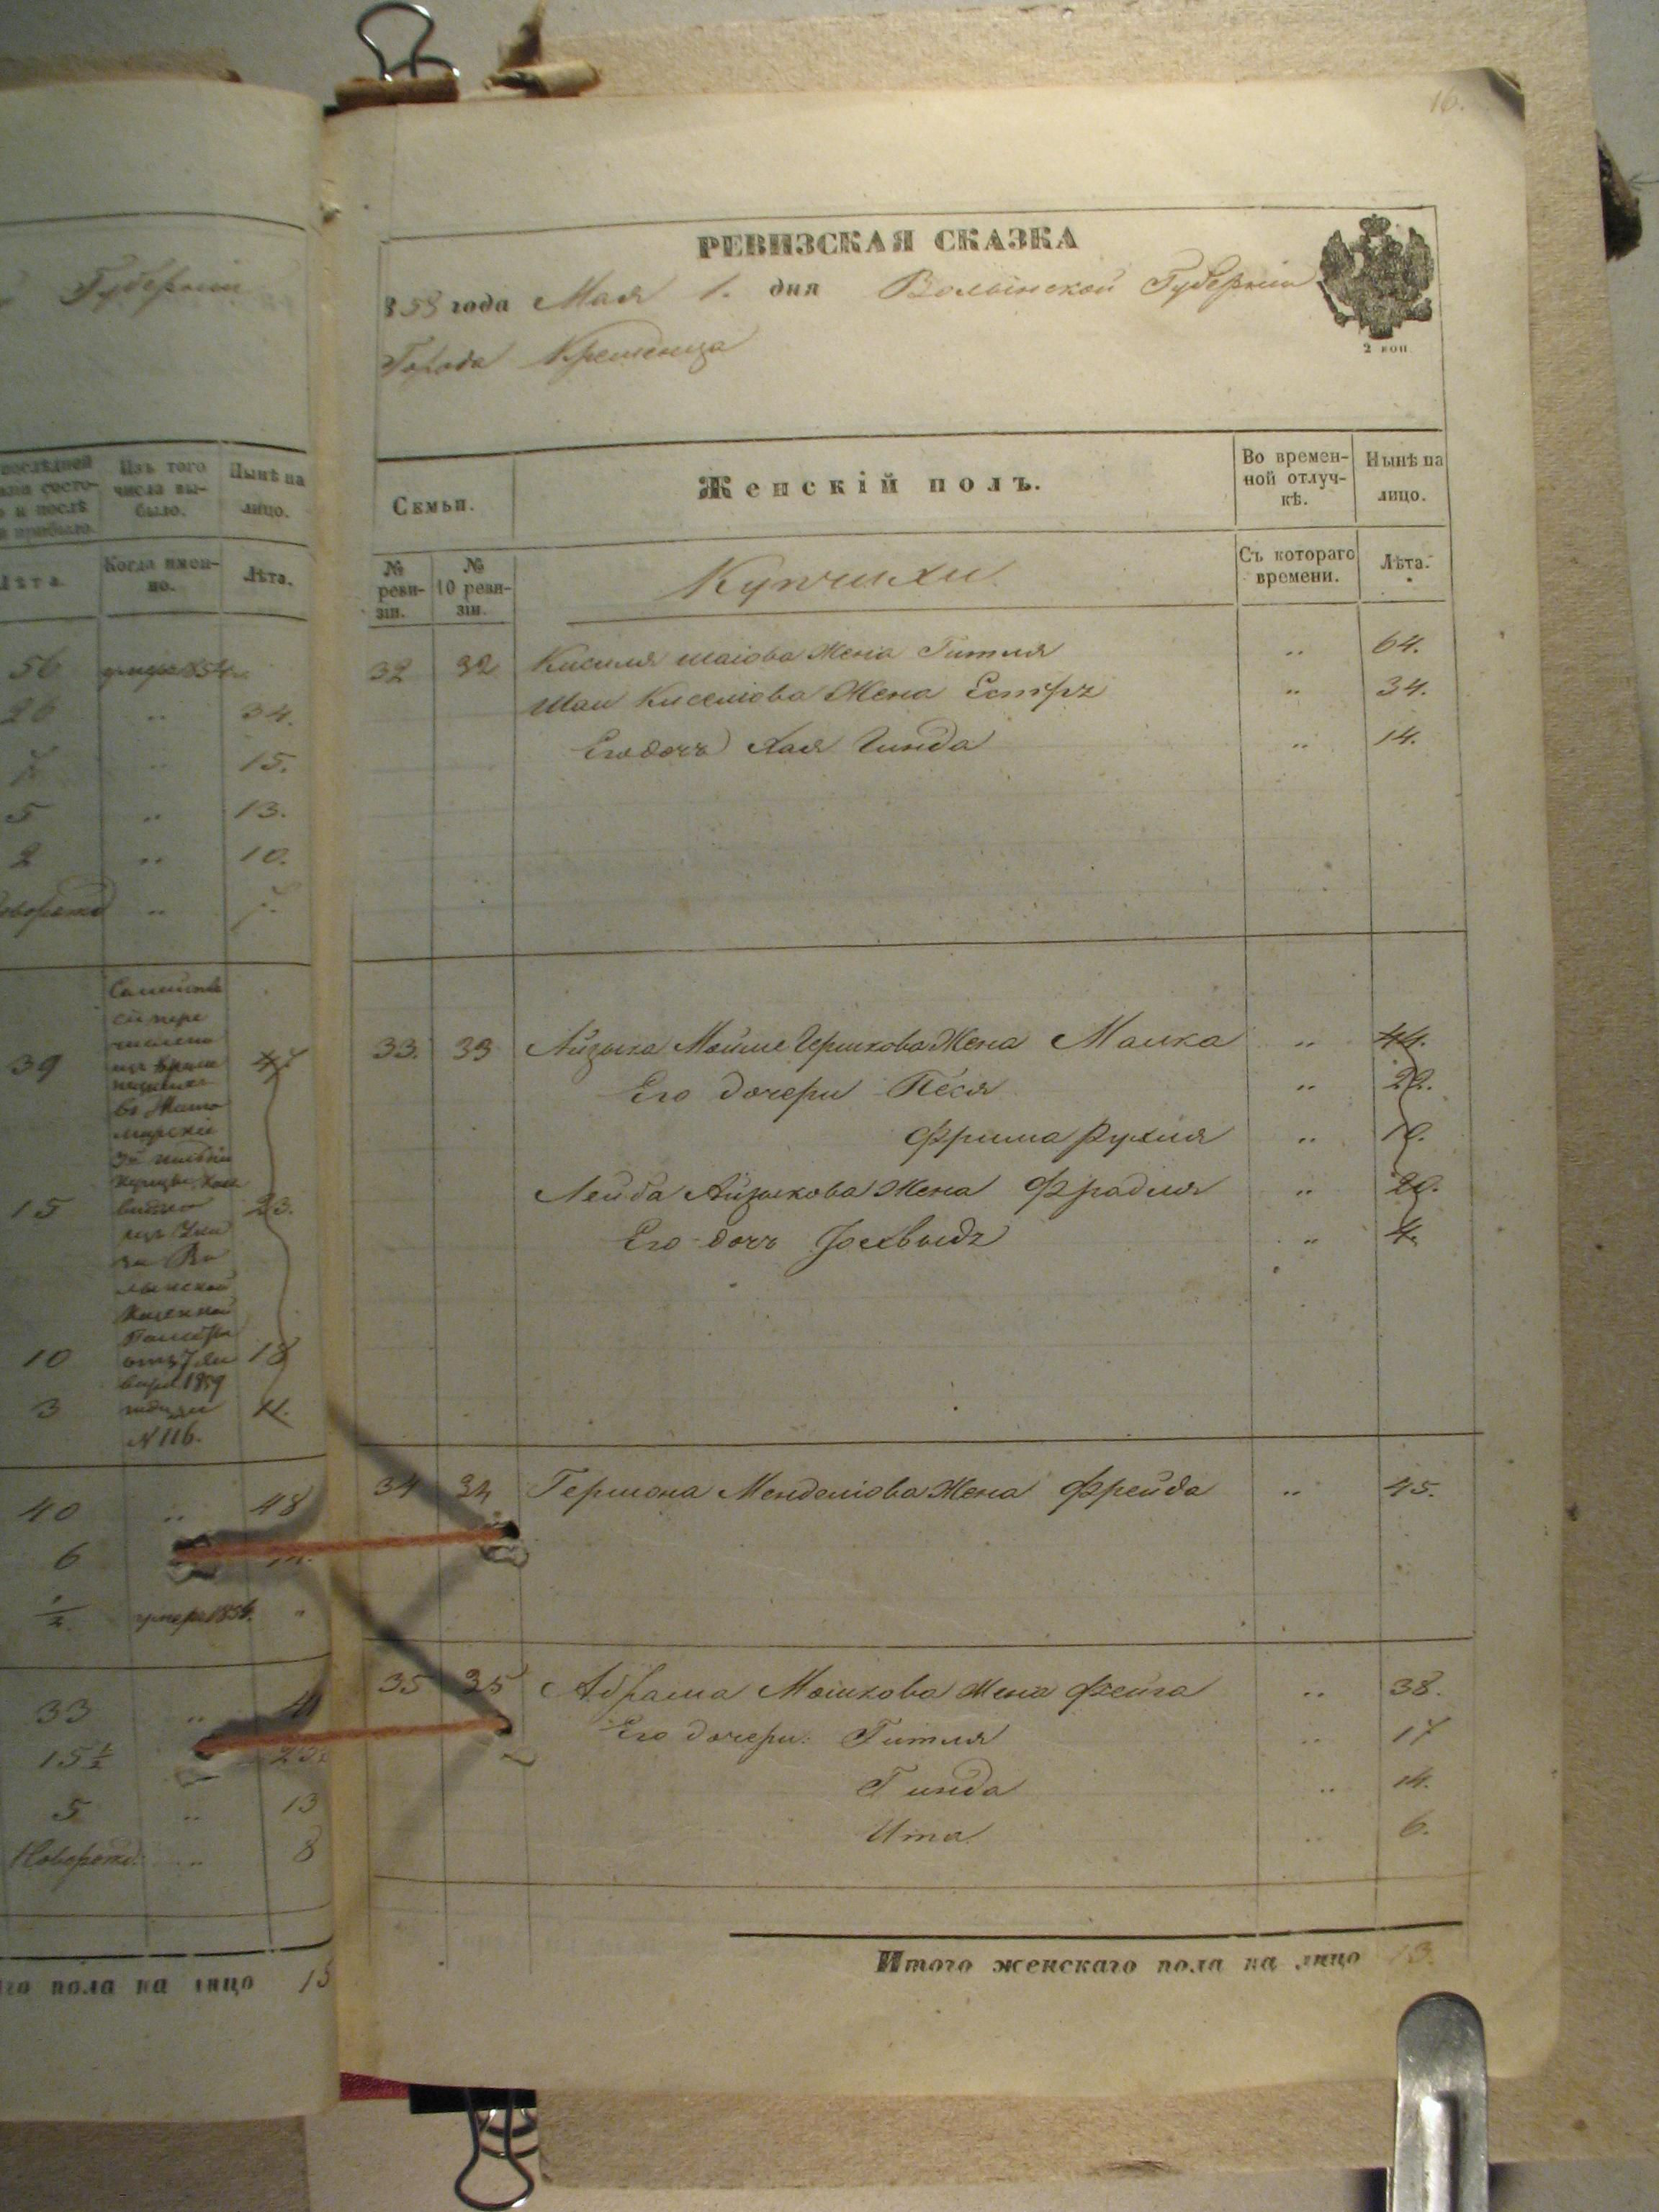 Губерніи
последней
Изъ того
числа вы-
было.
Нынѣ на
лицо.
Лѣта
Когда имен-
но.
Лѣта.
56 умеръ 1854 ..
26 .. 34.
7 .. 15.
5 .. 13.
2 .. 10.
новорожд .. 7.
39
15 23.
Казенной
Палаты
10 18
3 11.
N 116.
40 .. 48
6 14.
1/2 умеръ 1856. "
33 ..
15 1/2 23.
5 .. 13
Новорожд. .. 8
го пола на лицо 15
16.
РЕВИЗСКАЯ СКАЗКА
858 года Мая 1. дня Волынской Губерніи
Города Кременца
2 коп
Семьи.
Женскій полъ.
Во времен-
ной отлуч-
кѣ.
Нынѣ на
лицо.
№
реви-
зіи.
№
10 реви-
зіи.
Купчихи
Съ котораго
времени.
Лѣта.
32 32 Киселя Шаіова Жена Гитля .. 64.
Шаи Киселіова Жена Естръ .. 34.
Его дочь Хая Гинда .. 14.
33. 33 Айзыка Мойше Гершкова Жена Малка .. 44.
Его дочери Песя .. 22.
Фрима Рухля .. 10.
Лейба Айзыкова Жена Фрадля .. 20.
Его дочь Іохвыдъ .. 4.
34 34 Гершона Менделіова Жена Фрейда .. 45.
35 35 Абрама Мошкова Жена Фейга .. 38.
Его дочери: Гитля .. 17
Гинда .. 14.
Ита .. 6.
Итого женскаго пола на лицо 13.